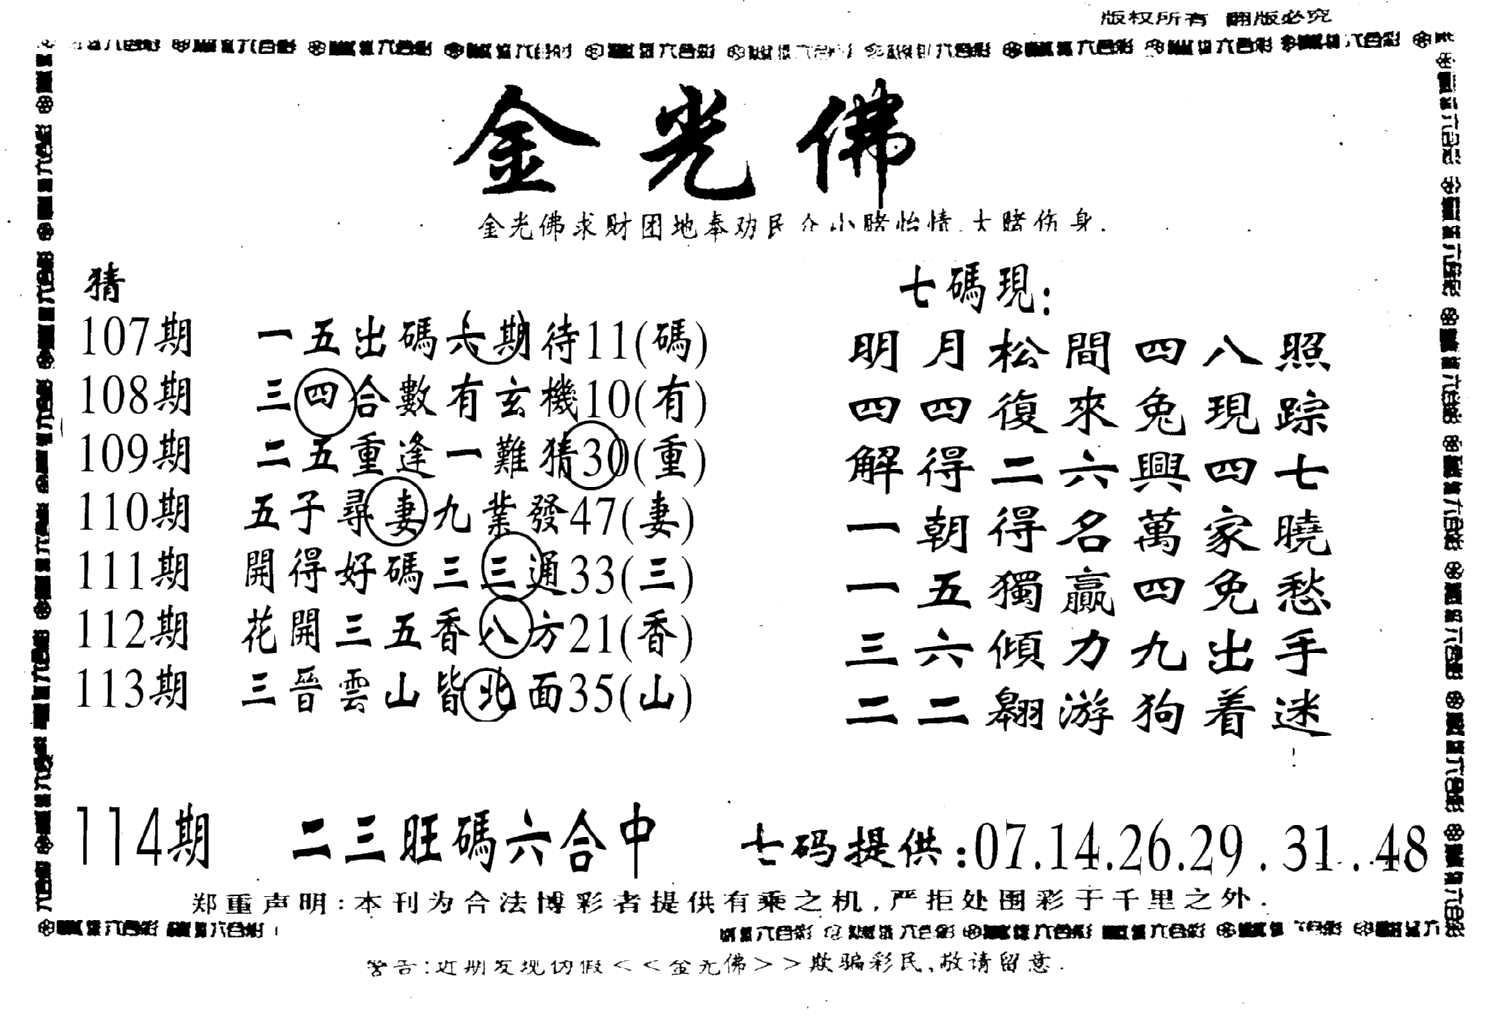 版权所有 翻版必究
金光佛
金光佛求财团地奉劝民众小賭怡情.大賭伤身.
猜
107期 一五出碼六期待11(碼)
108期 三四合數有玄機10(有)
109期 二五重逢一難猜30(重)
110期 五子尋妻九業發47(妻)
111期 開得好碼三三通33(三)
112期 花開三五香八方21(香)
113期 三晉雲山皆北面35(山)
七碼現:
明月松間四八照
四四復來兔現踪
解得二六興四七
一朝得名萬家曉
一五獨贏四免愁
三六傾力九出手
二二翱游狗着迷
114期 二三旺碼六合中 七码提供:07.14.26.29.31..48
郑重声明:本刊为合法博彩者提供有乘之机,严拒处围彩于千里之外.
警告:近期发现仿假<<金光佛>>欺骗彩民,敬请留意.